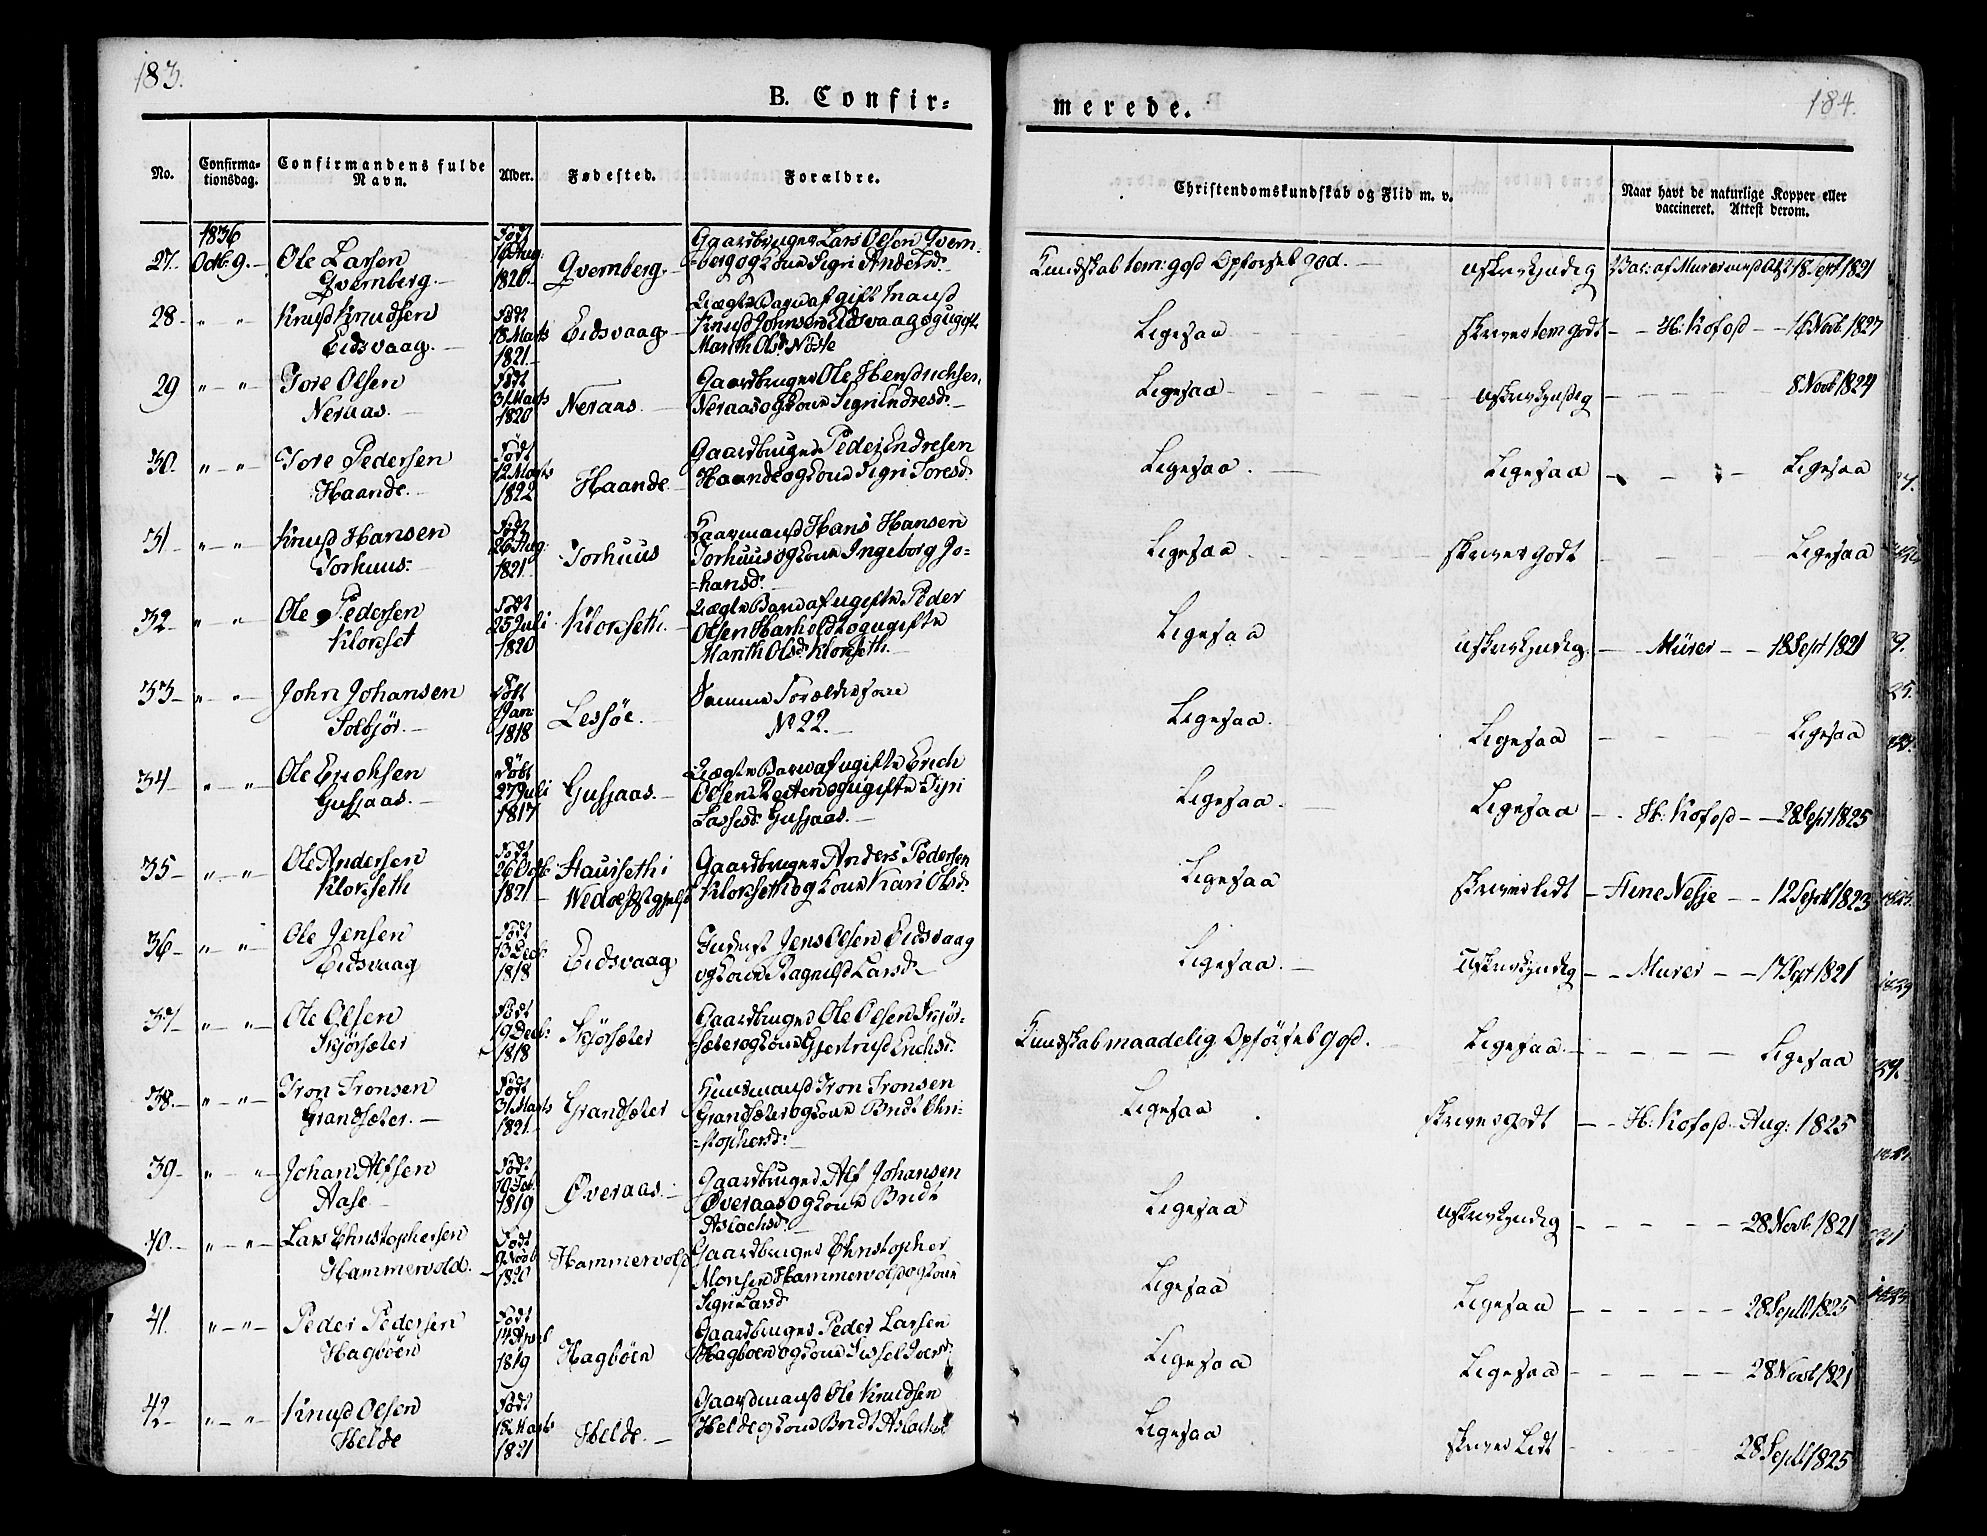 183.
184.
B. Confir=
merede.
No.
Confirma-
tionsdag.
Confirmandens fulde
Navn.
Alder.
Fødested.
Forældre.
Christendomskundskab og Flid m. v.
Naar havt de naturlige Kopper eller
vaccineret. Attest derom.
1836
27. Octb. 9. Ole Larsen
Qvernberg.
Født
16 Aug:
1820.
Qvernberg.
Gaardbruger Lars Olsen Qvern-
berg og Kone Sigri Andersd.
Kundskab tem: god Opførsel god.
uskrivkyndig
Vac: af Murer med Att 18 Sept 1821
28 Knud Knudsen
Eidsvaag.
Født
18 Marts
1821
Eidsvaag
Uægte Barn af gift Mand
Knud Johnsen Eidsvaag og ugift
Marith Olsd. Nøste
Ligesaa
skriver tem godt
H: Kofod 16 Novb. 1827
29 Tore Olsen
Neraas.
Født
31 Marts
1820
Neraas
Gaardbruger Ole Hendrichsen
Neraas og Kone Sigri Endresd.
Ligesaa
uskrivkyndig
8 Novb 1824
30. Tore Pedersen
Haande.
Født
12 Marts
1822
Haande
Gaardbruger Peder Endresen
Haande og Kone Sigri Toresd.
Ligesaa
Ligesaa
Ligesaa
31 Knud Hansen
Torhuus
Født
26 Aug:
1821
Torhuus
Kaarmand Hans Hansen
Torhuus og Kone Ingeborg Jo-
hansd.
Ligesaa
skriver godt
Ligesaa
32 Ole Pedersen
Klokset
Født
25 Juli
1820
Klokseth.
Uægte Barn af ugifte Peder
Olsen Harhold og ugifte
Marith Olsd. Klokseth.
Ligesaa
uskrivkyndig
Mürer 18 Sept 1821
33 John Johansen
Solbjør.
Døbt
Jan:
1818
Lessøe.
Samme Forældre som
No 22.
Ligesaa.
Ligesaa
Ligesaa
34 Ole Erichsen
Gusjaas.
Døbt
27 Juli
1817
Gusjaas.
Uægte Barn af ugifte Erich
Olsen og ugifte Sigri
Lassesd. Gusjaas.
Ligesaa.
Ligesaa
H: Kofod 28 Sept 1825
35 Ole Andersen
Klokseth
Født
26 Octb
1821
Haurseth i
Wedøe Prstgjæld
Gaardbruger Anders Pedersen
Klokseth og Kone Kari Olsd.
Ligesaa
skriver lidt
Arne Nesje 12 Septb 1823
36 Ole Jensen
Eidsvaag
Født
13 Dec:
1818
Eidsvaag
Inderst Jens Olsen Eidsvaag
og Kone Ragnild Larsd.
Ligesaa.
Uskrivkyndig
Murer 17 Sept 1821
37 Ole Olsen
Skjørsæter
Født
19 Decb:
1818
Skjørsæter
Gaardbruger Ole Olsen Skjør-
sæter og Kone Gjertrud Erichsd.
Kundskab maadelig. Opførsel god.
Ligesaa.
Ligesaa
38. Tron Tronsen
Grandsæter.
Født
31 Marts
1821
Grandsæter
Huusmand Tron Tronsen
Grandsæter og Kone Bridt Chri-
stophersd.
Ligesaa
skriver godt
H: Kofod Aug: 1825
39 Johan Alfsen
Aase
Født
10 Feb:
1819
Øveraas.
Gaardbruger Alf Johansen
Øveraas og Kone Bridt
Aslachsd.
Ligesaa
uskrivkyndig
28 Novb. 1821
40. Lars Christophersen
Hammervold.
Født
9 Novb
1820
Hammervold
Gaardbruger Christopher
Monsen Hammervold og Kone
Sigri Larsd.
Ligesaa
Ligesaa
28 Septb 1825
41. Peder Pedersen
Hagbøen
Født
14
1819
Hagbøen
Gaardbruger Peder Larsen
Hagbøen og Kone Sissel Iversd.
Ligesaa
Ligesaa
28 Novb 1821
42 Knud Olsen
Helde
Født
18 Marts
1821
Helde.
Gaardmand Ole Knudsen
Helde og Kone Bridt Aslachsd.
Ligesaa
skriver lidt
28 Septb 1825